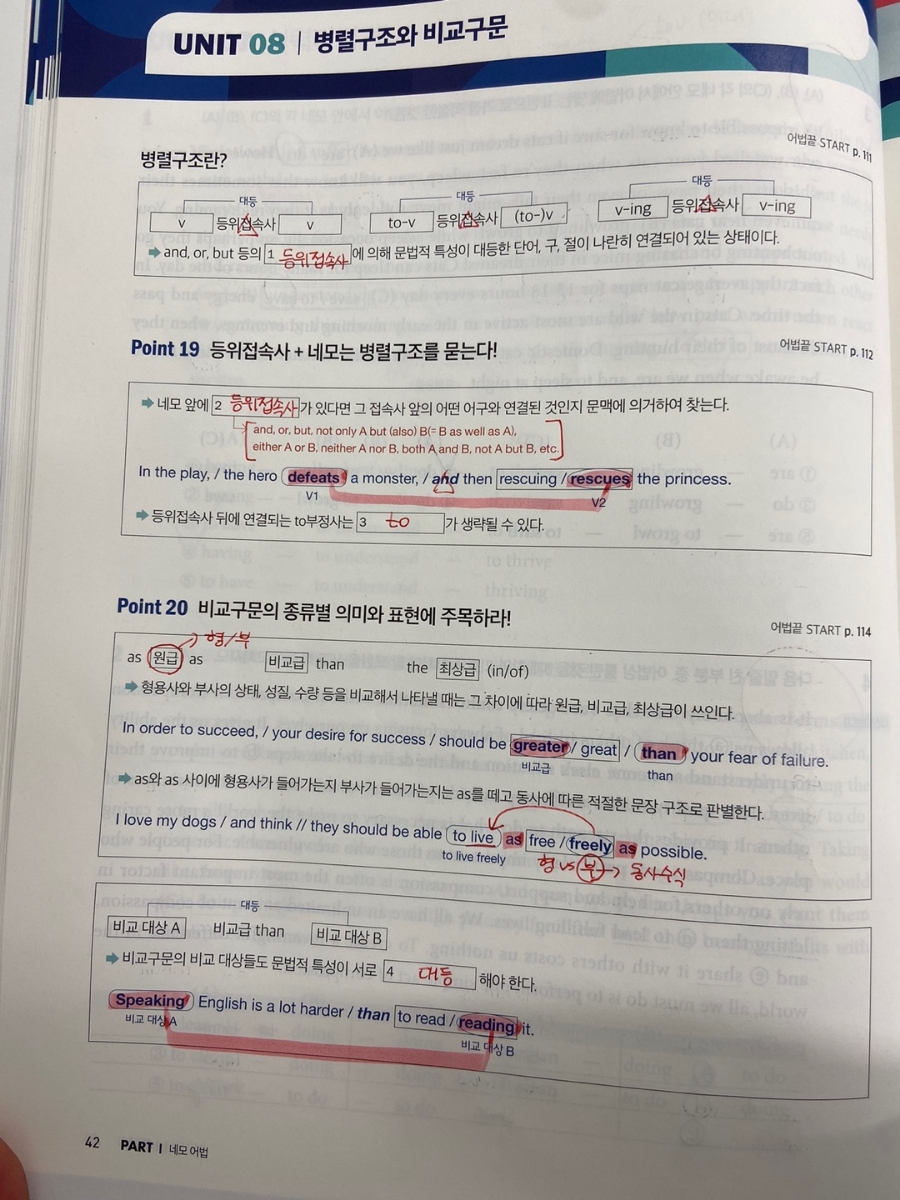 UNIT 08 | 병렬구조와 비교구문
어법끝 START p. 111
병렬구조란?
대등 대등 대등
v 등위접속사 v to-v 등위접속사 (to-)v v-ing 등위접속사 v-ing
➡ and, or, but 등의 1 등위접속사 에 의해 문법적 특성이 대등한 단어, 구, 절이 나란히 연결되어 있는 상태이다.
Point 19 등위접속사 + 네모는 병렬구조를 묻는다! 어법끝 START p. 112
➡ 네모 앞에 2 등위접속사 가 있다면 그 접속사 앞의 어떤 어구와 연결된 것인지 문맥에 의거하여 찾는다.
and, or, but, not only A but (also) B(= B as well as A),
either A or B, neither A nor B, both A and B, not A but B, etc.
In the play, / the hero defeats a monster, / and then rescuing / rescues the princess.
V1 V2
➡ 등위접속사 뒤에 연결되는 to부정사는 3 to 가 생략될 수 있다.
Point 20 비교구문의 종류별 의미와 표현에 주목하라! 어법끝 START p. 114
형/부
as 원급 as 비교급 than the 최상급 (in/of)
➡ 형용사와 부사의 상태, 성질, 수량 등을 비교해서 나타낼 때는 그 차이에 따라 원급, 비교급, 최상급이 쓰인다.
In order to succeed, / your desire for success / should be greater / great / than your fear of failure.
비교급 than
➡ as와 as 사이에 형용사가 들어가는지 부사가 들어가는지는 as를 떼고 동사에 따른 적절한 문장 구조로 판별한다.
I love my dogs / and think // they should be able to live as free / freely as possible.
to live freely 형 vs 부 → 동사수식
대등
비교 대상 A 비교급 than 비교 대상 B
➡ 비교구문의 비교 대상들도 문법적 특성이 서로 4 대등 해야 한다.
Speaking English is a lot harder / than to read / reading it.
비교 대상 A 비교 대상 B
42 PART I 네모 어법